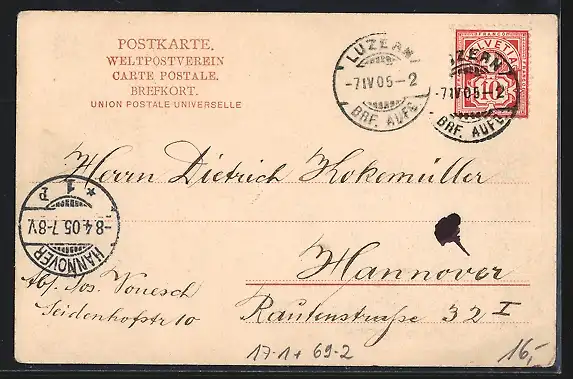 POSTKARTE.
WELTPOSTVEREIN
CARTE POSTALE.
BREFKORT.
UNION POSTALE UNIVERSELLE
LUZERN
-7.IV.05-2
BRF. AUFG.
FRANCO
HELVETIA
10
LUZERN
-7.IV.05-2
BRF. AUFG.
Herrn Dietrich Kokemüller
* 1 P
-8.4.05.7-8V.
HANNOVER
Hannover
Abs. Jos. Vonesch
Seidenhofstr 10
Rautenstraße 32 I
17-1+ 69-2
16,-